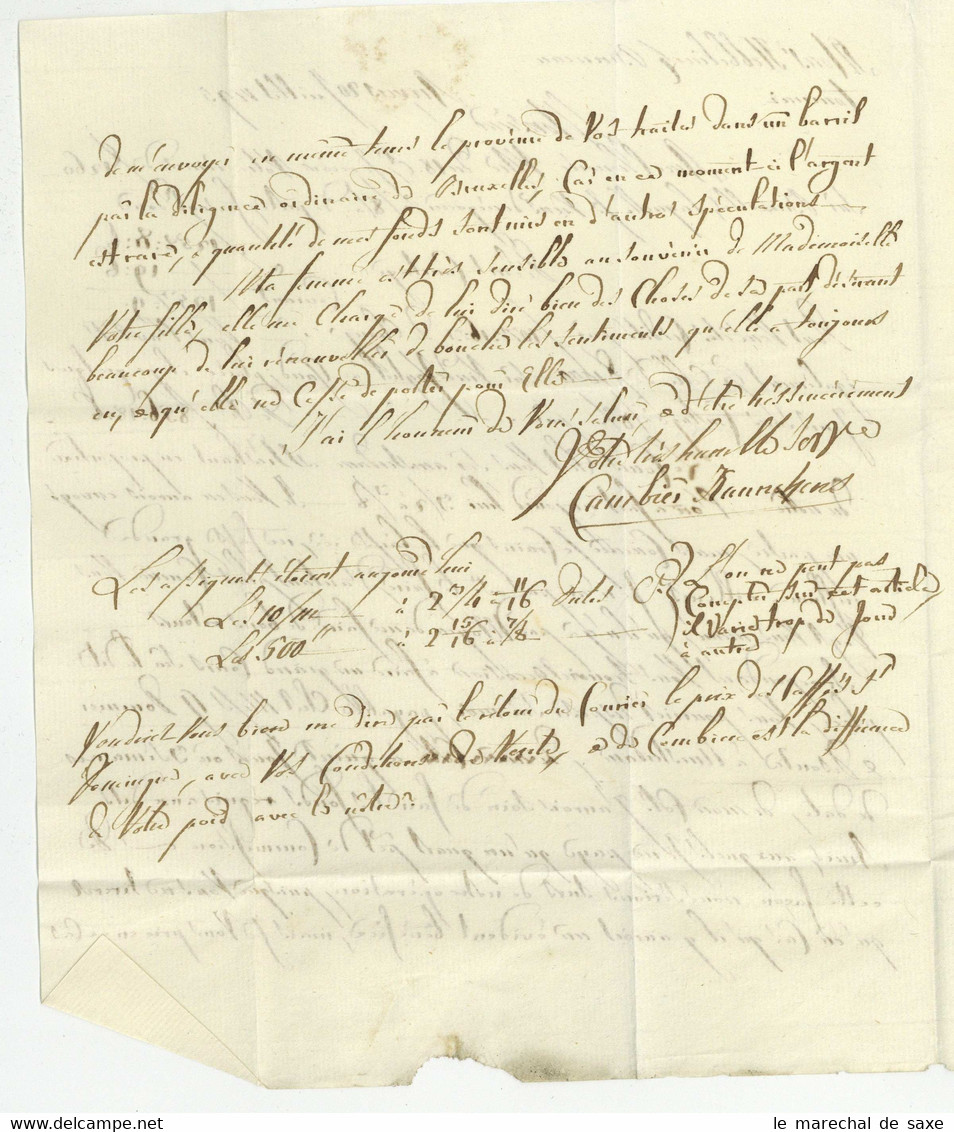 de m'envoyer en même tems le provenu de Vos traites dans un barril
par la diligence ordinaire de Bruxelles, Car en ce moment-ci l'argent
est rare, & quantité de mes fonds sont mis en d'autres spéculations
Ma femme est très sensible au souvenir de Mademoiselle
Votre fille, elle me Charge de lui dire bien des Choses de sa part, désirant
beaucoup de lui rénouveller de bouche les sentiments qu'elle a toujours
eu, & qu'elle ne Cesse de porter pour Elle
J'ai l'honneur de Vous saluer & d'être très sincérement
Votre très humble Serv
Cambier
Les assignats étoient aujourd'hui
Les 10/m à 2 3/4 à 11/16
Les 500" à 2 15/16 à 7/8
L'on ne peut pas
Compter sur cet article
il Varie trop de Jour
à autre
Voudriez Vous bien me dire par le rétour du Courier le prix des Caffés St
Domingue, avec Vos Conditions de Vente, & de Combien est la différence
de Votre poid avec le nôtre.
le marechal de saxe